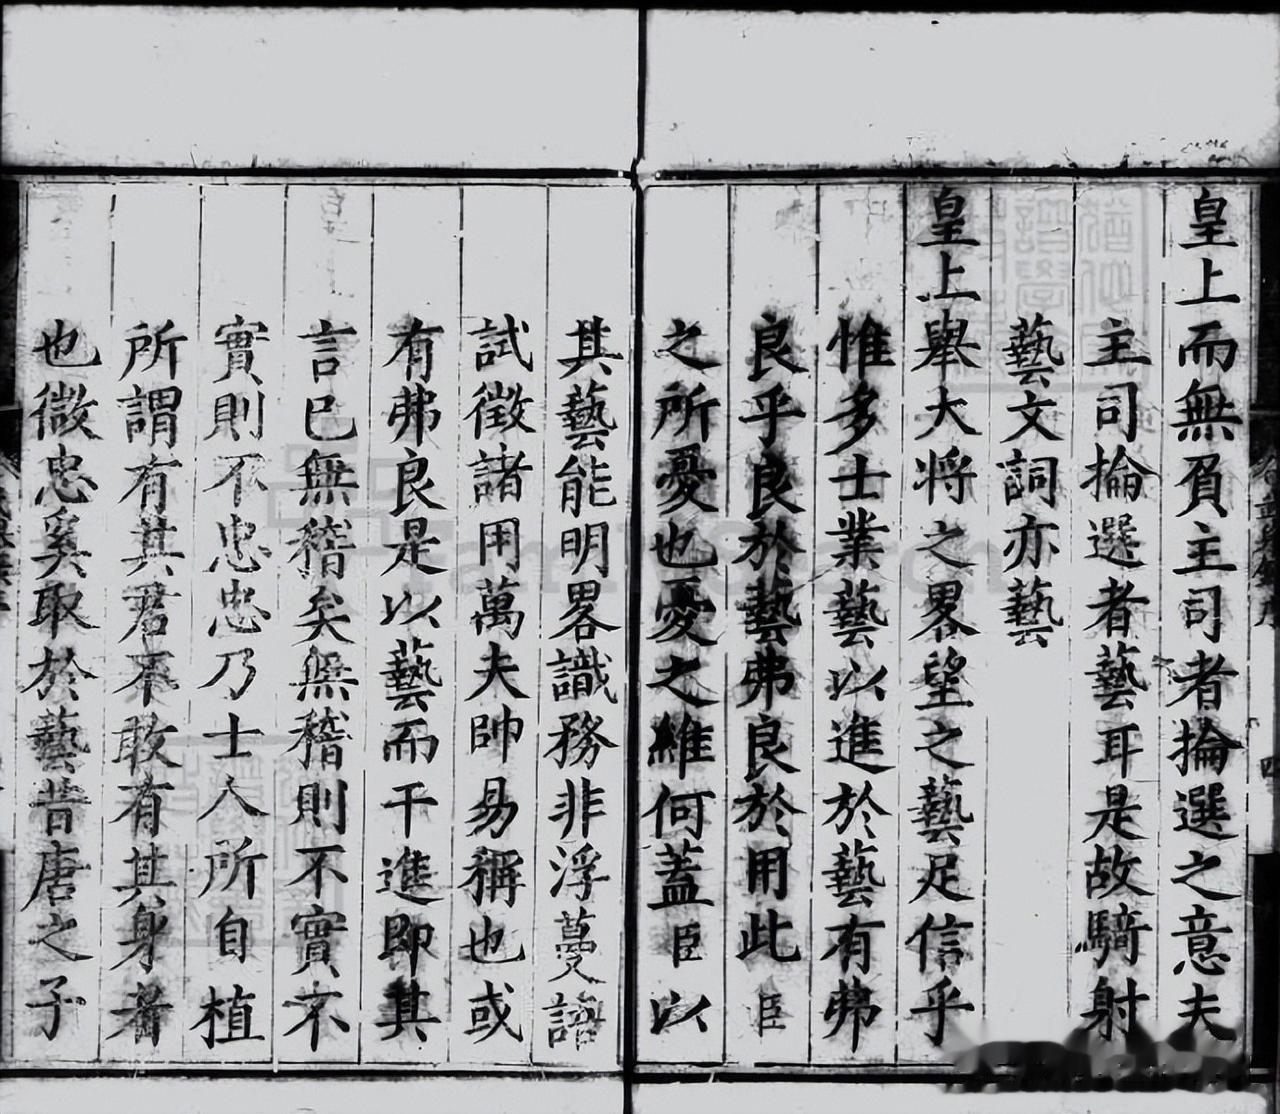 皇上而無負主司者掄選之意夫
主司掄選者藝耳是故騎射
藝文詞亦藝
皇上舉大將之畧望之藝足信乎
惟多士業藝以進於藝有弗
良乎良於藝弗良於用此臣
之所憂也憂之維何蓋臣以
其藝能明畧識務非浮蔓諮
試徵諸用萬夫帥易稱也或
有弗良是以藝而干進即其
言已無稽矣無稽則不實不
實則不忠忠乃士人所自植
所謂有其君不敢有其身者
也微忠奚取於藝昔唐之子